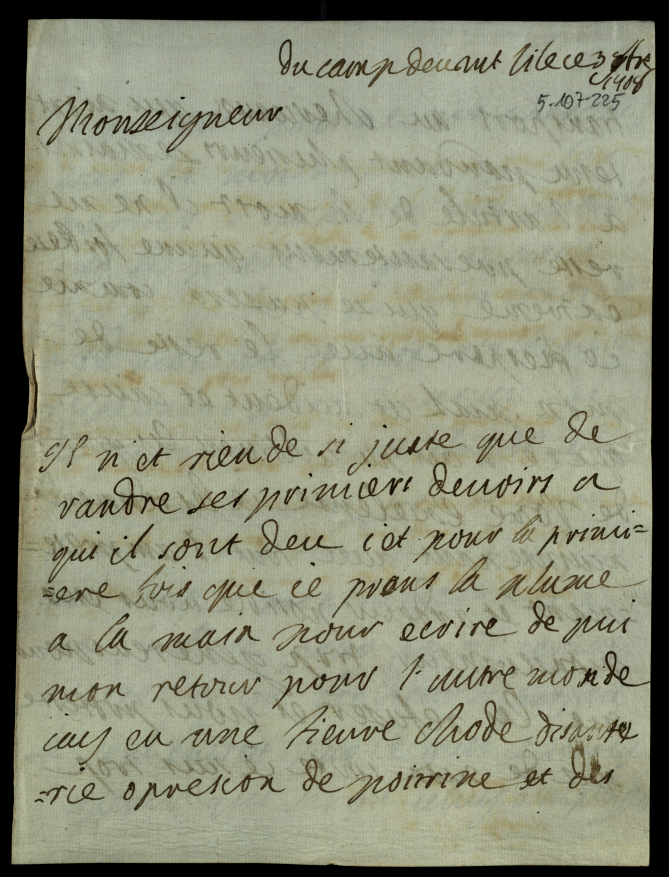 du camp devant lile ce 3 8bre
1708
5-107-225
Monseigneur
Il n et rien de si juste que de
randre ses primiers devoirs a
qui il sont deu cet pour la primi=
=ere fois que ie prans la plume
a la main pour ecrire de pui
mon retour pour l autre monde
iay eu une fieuvre chode disante
=rie opresion de poitrine et des